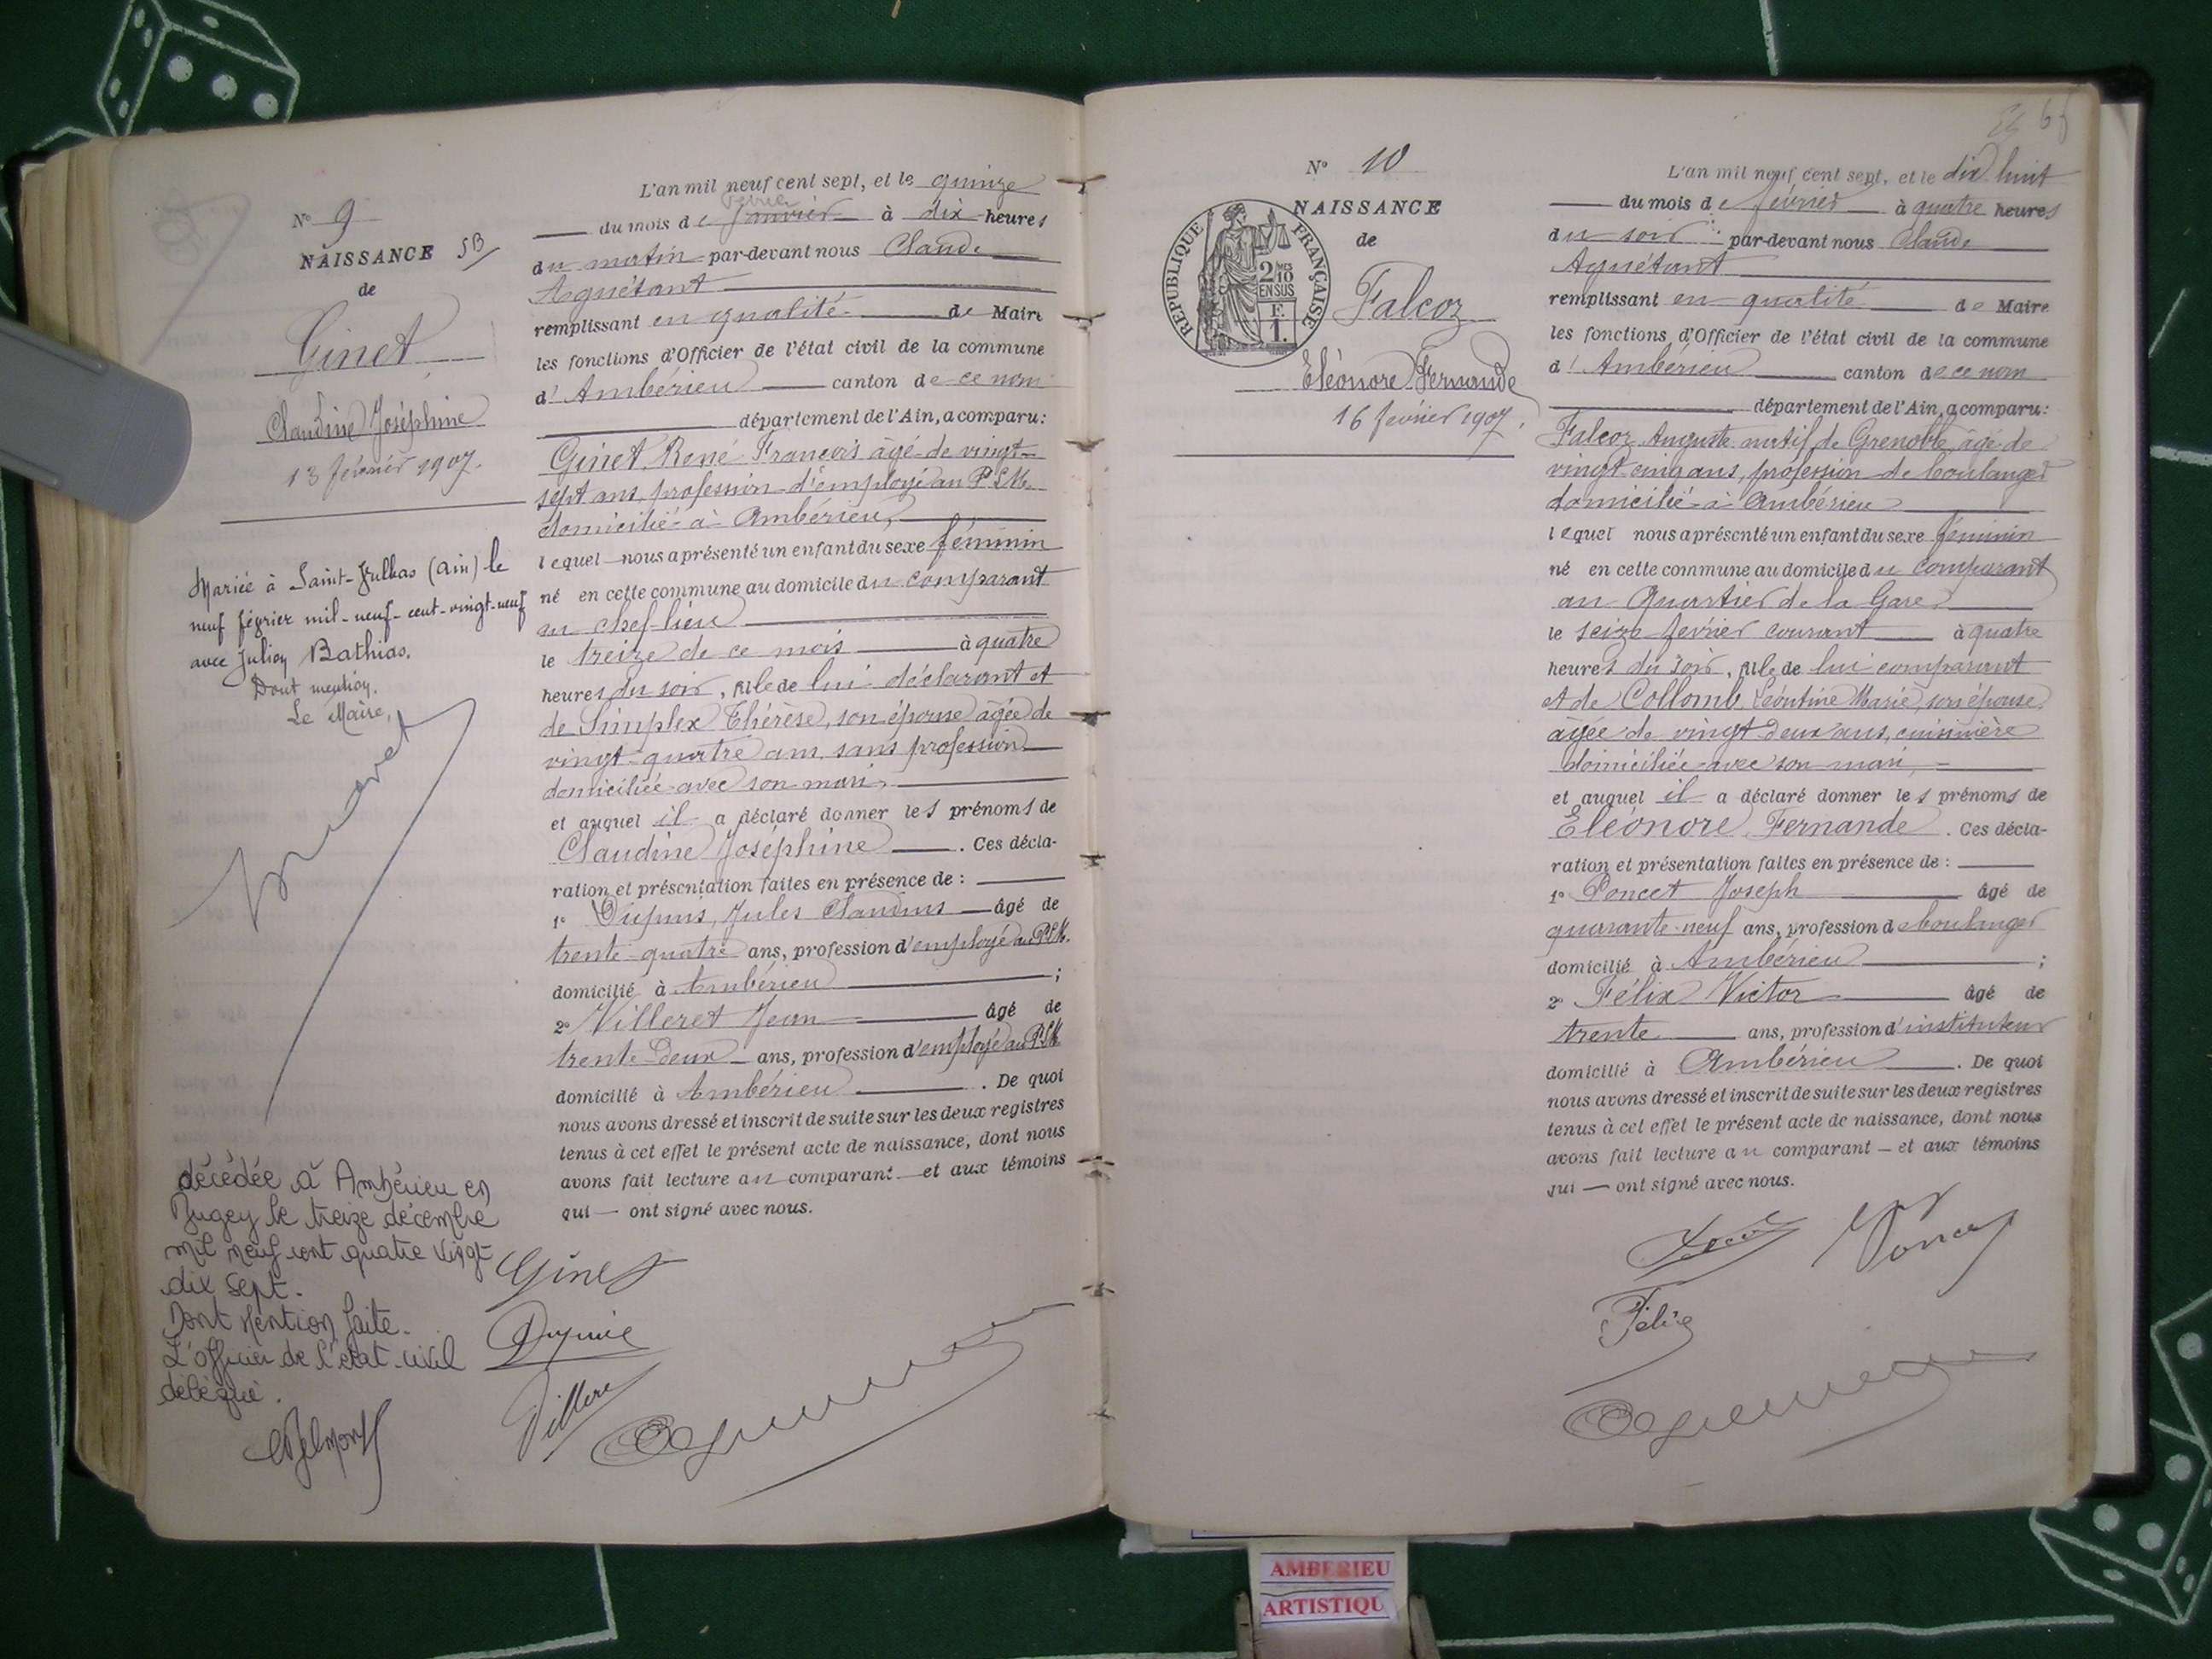 N° 9
NAISSANCE 5B
de
Ginet
Claudine Joséphine
13 février 1907.
Mariée à Saint-Julhas (Ain) le
neuf février mil-neuf-cent-vingt-neuf
avec Julien Bathias.
Dont mention.
Le Maire,
décédée à Ambérieu en
Bugey le treize décembre
mil neuf cent quatre vingt
dix sept.
Dont Mention faite.
L'officier de l'état-civil
délégué.
L'an mil neuf cent sept, et le quinze
février
du mois de janvier à dix heures
du matin par-devant nous Claude
Aguétant
remplissant en qualité de Maire
les fonctions d'Officier de l'état civil de la commune
d'Ambérieu canton de ce nom
département de l'Ain, a comparu:
Ginet René François âgé de vingt-
sept ans, profession d'employé au P.L.M.
domicilié à Ambérieu,
lequel nous a présenté un enfant du sexe féminin
né en cette commune au domicile du comparant
au chef-lieu
le treize de ce mois à quatre
heures du soir, fille de lui déclarant et
de Simplex Thérèse, son épouse âgée de
vingt-quatre ans, sans profession
domiciliée avec son mari,
et auquel il a déclaré donner les prénoms de
Claudine Joséphine. Ces décla-
ration et présentation faites en présence de :
1° Dupuis, Jules Claudius âgé de
trente-quatre ans, profession d'employé au P.L.M.
domicilié à Ambérieu ;
2° Villeret Jean âgé de
trente-deux ans, profession d'employé au P.L.M.
domicilié à Ambérieu. De quoi
nous avons dressé et inscrit de suite sur les deux registres
tenus à cet effet le présent acte de naissance, dont nous
avons fait lecture au comparant et aux témoins
qui — ont signé avec nous.
Ginet
Dupuis
Villeret
N° 10
NAISSANCE
de
RÉPUBLIQUE FRANÇAISE
2/10 MES
EN SUS
F.
1.
Falcoz
Eléonore Fernande
16 février 1907.
65
L'an mil neuf cent sept, et le dix huit
du mois de février à quatre heures
du soir par-devant nous Claude
Aguétant
remplissant en qualité de Maire
les fonctions d'Officier de l'état civil de la commune
d'Ambérieu canton de ce nom
département de l'Ain, a comparu:
Falcoz Auguste natif de Grenoble, âgé de
vingt cinq ans, profession de boulanger
domicilié à Ambérieu
lequel nous a présenté un enfant du sexe féminin
né en cette commune au domicile du comparant
au Quartier de la Gare
le seize février courant à quatre
heures du soir, fille de lui comparant
et de Collomb Léontine Marie, son épouse
âgée de vingt deux ans, cuisinière
domiciliée avec son mari,
et auquel il a déclaré donner les prénoms de
Eléonore Fernande. Ces décla-
ration et présentation faites en présence de :
1° Poncet Joseph âgé de
quarante-neuf ans, profession de boulanger
domicilié à Ambérieu ;
2° Félix Victor âgé de
trente ans, profession d'instituteur
domicilié à Ambérieu. De quoi
nous avons dressé et inscrit de suite sur les deux registres
tenus à cet effet le présent acte de naissance, dont nous
avons fait lecture au comparant — et aux témoins
qui — ont signé avec nous.
Poncet
Félix
AMBERIEU
ARTISTIQU